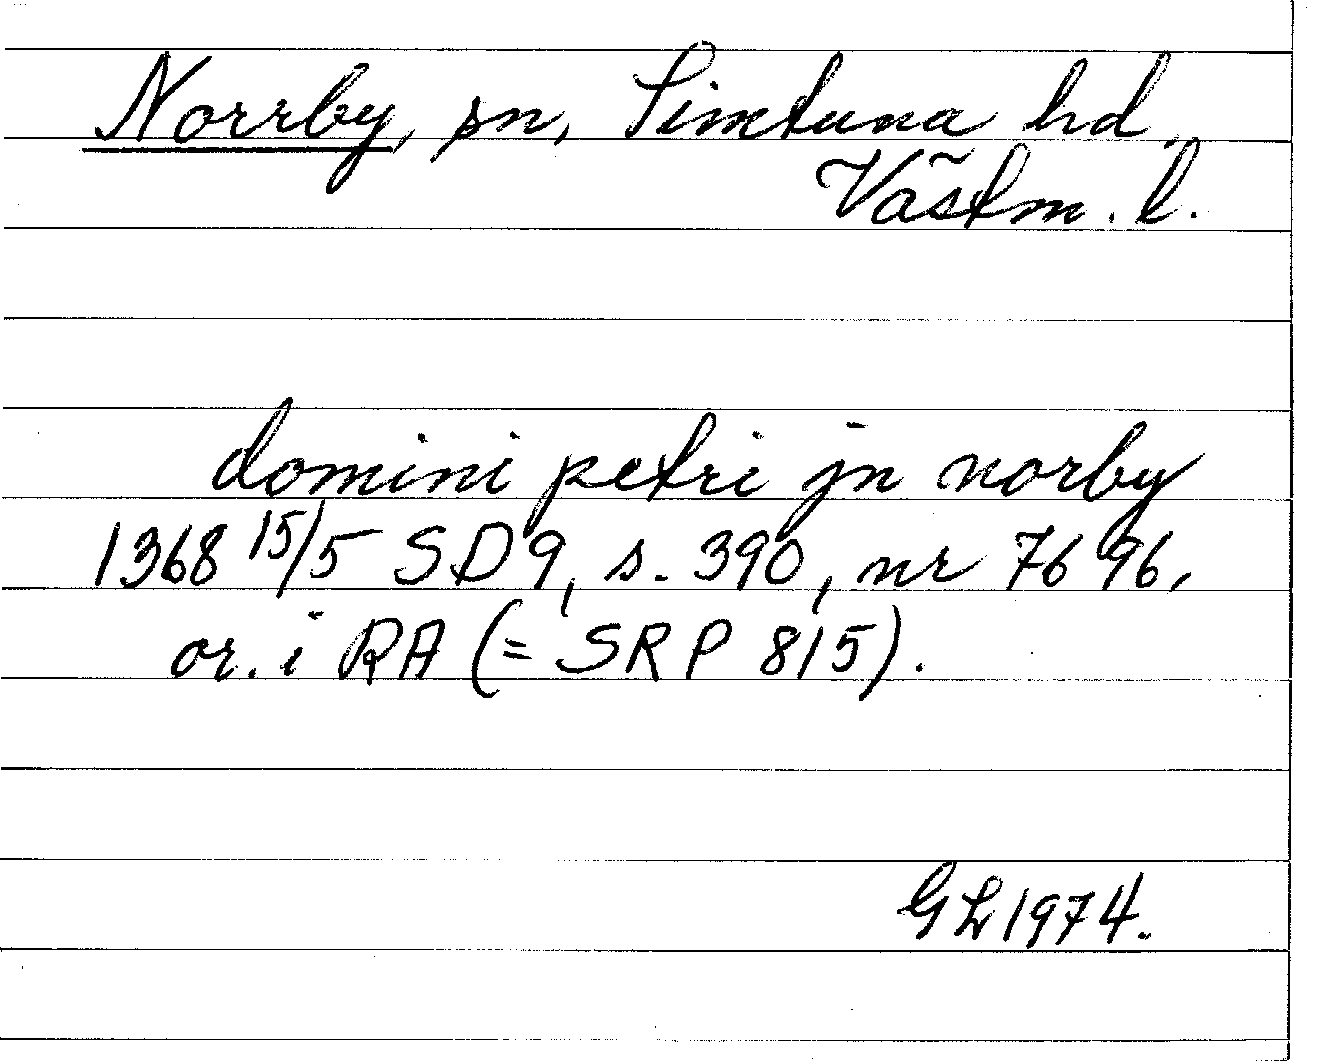 Norrby, sn, Simtuna hd,
Västm. l.
domini petri jn norby
1368 15/5 SD 9, s. 390, nr 7696,
or. i RA (= SRP 815).
GL 1974.